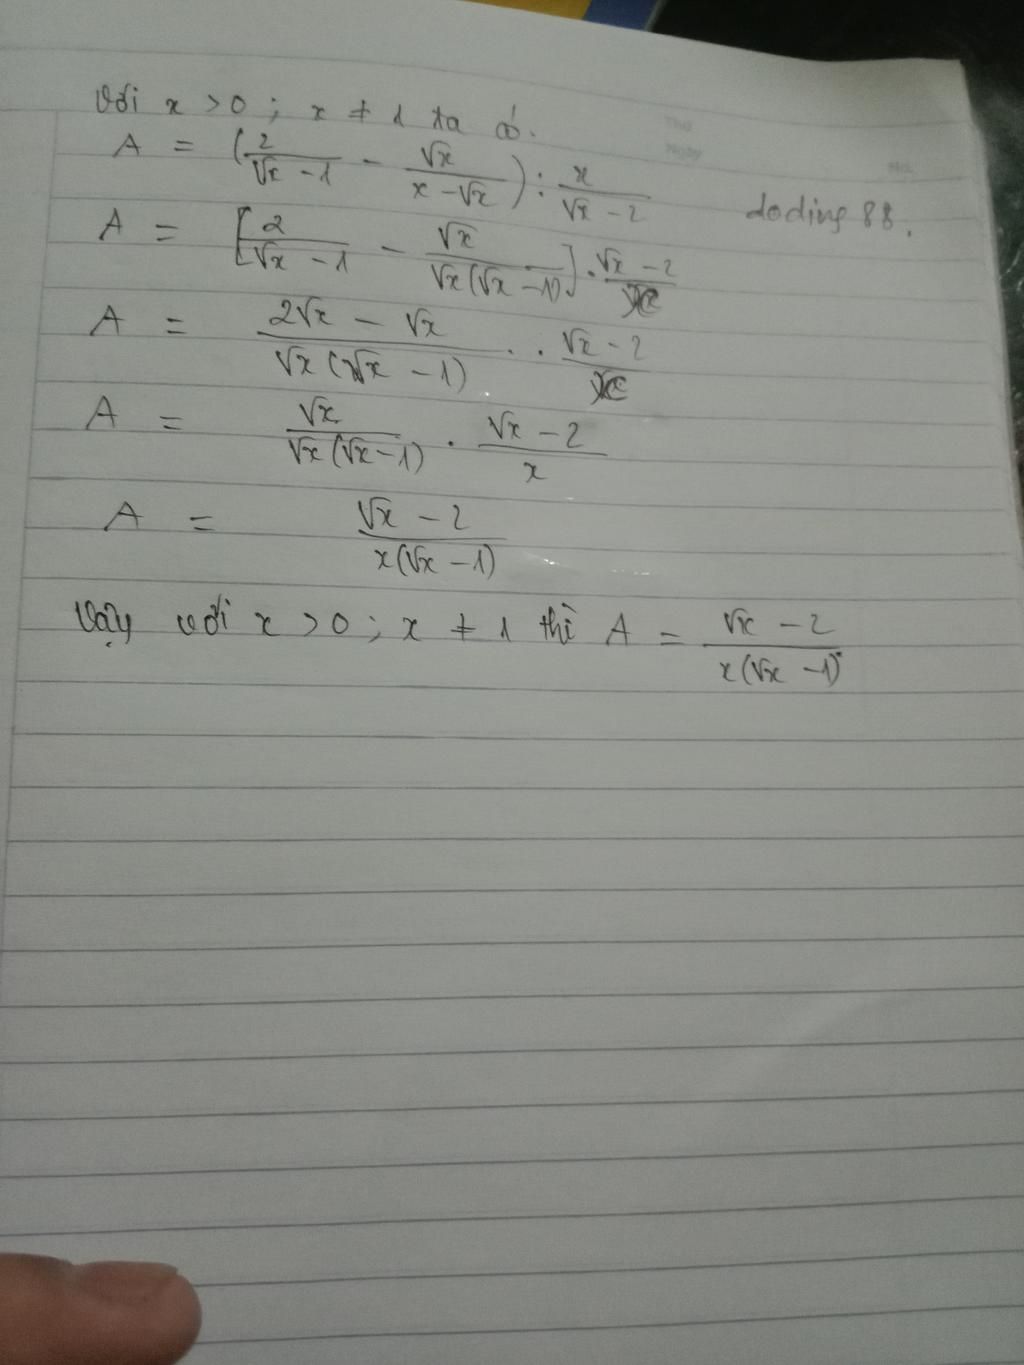 Với x > 0 ; x ≠ 1 ta có.
A = (2/(√x − 1) − √x/(x − √x)) : x/(√x − 2)
doding 88.
A = [2/(√x − 1) − √x/(√x(√x − 1))] . (√x − 2)/x
A = (2√x − √x)/(√x(√x − 1)) . . (√x − 2)/x
A = √x/(√x(√x − 1)) . (√x − 2)/x
A = (√x − 2)/(x(√x − 1))
Vậy với x > 0 ; x ≠ 1 thì A = (√x − 2)/(x(√x − 1)).